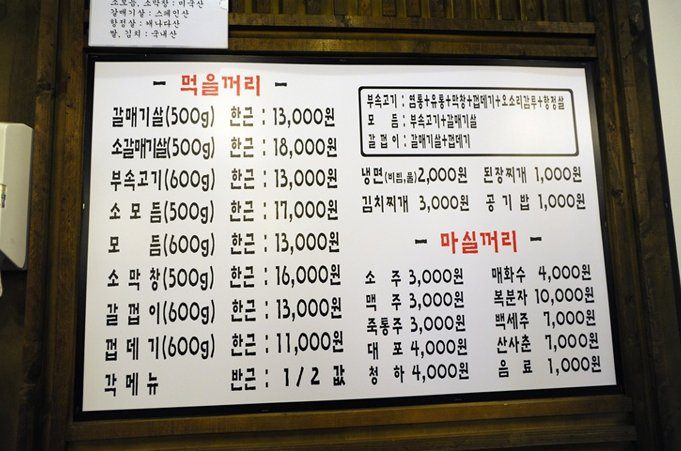 소모듬, 소막창 : 미국산
갈매기살 : 스페인산
항정살 : 캐나다산
쌀, 김치 : 국내산
- 먹을꺼리 -
갈매기살(500g) 한근 : 13,000원
소갈매기살(500g) 한근 : 18,000원
부속고기(600g) 한근 : 13,000원
소모듬(500g) 한근 : 17,000원
모 듬(600g) 한근 : 13,000원
소막창(500g) 한근 : 16,000원
갈껍이(600g) 한근 : 13,000원
껍데기(600g) 한근 : 11,000원
각메뉴 반근 : 1/2 값
부속고기 : 염통+유통+막창+껍데기+오소리감투+항정살
모 듬 : 부속고기+갈매기살
갈껍이 : 갈매기살+껍데기
냉면(비빔,물) 2,000원 된장찌개 1,000원
김치찌개 3,000원 공기밥 1,000원
- 마실꺼리 -
소주 3,000원 매화수 4,000원
맥주 3,000원 복분자 10,000원
죽통주 3,000원 백세주 7,000원
대포 4,000원 산사춘 7,000원
청하 4,000원 음료 1,000원